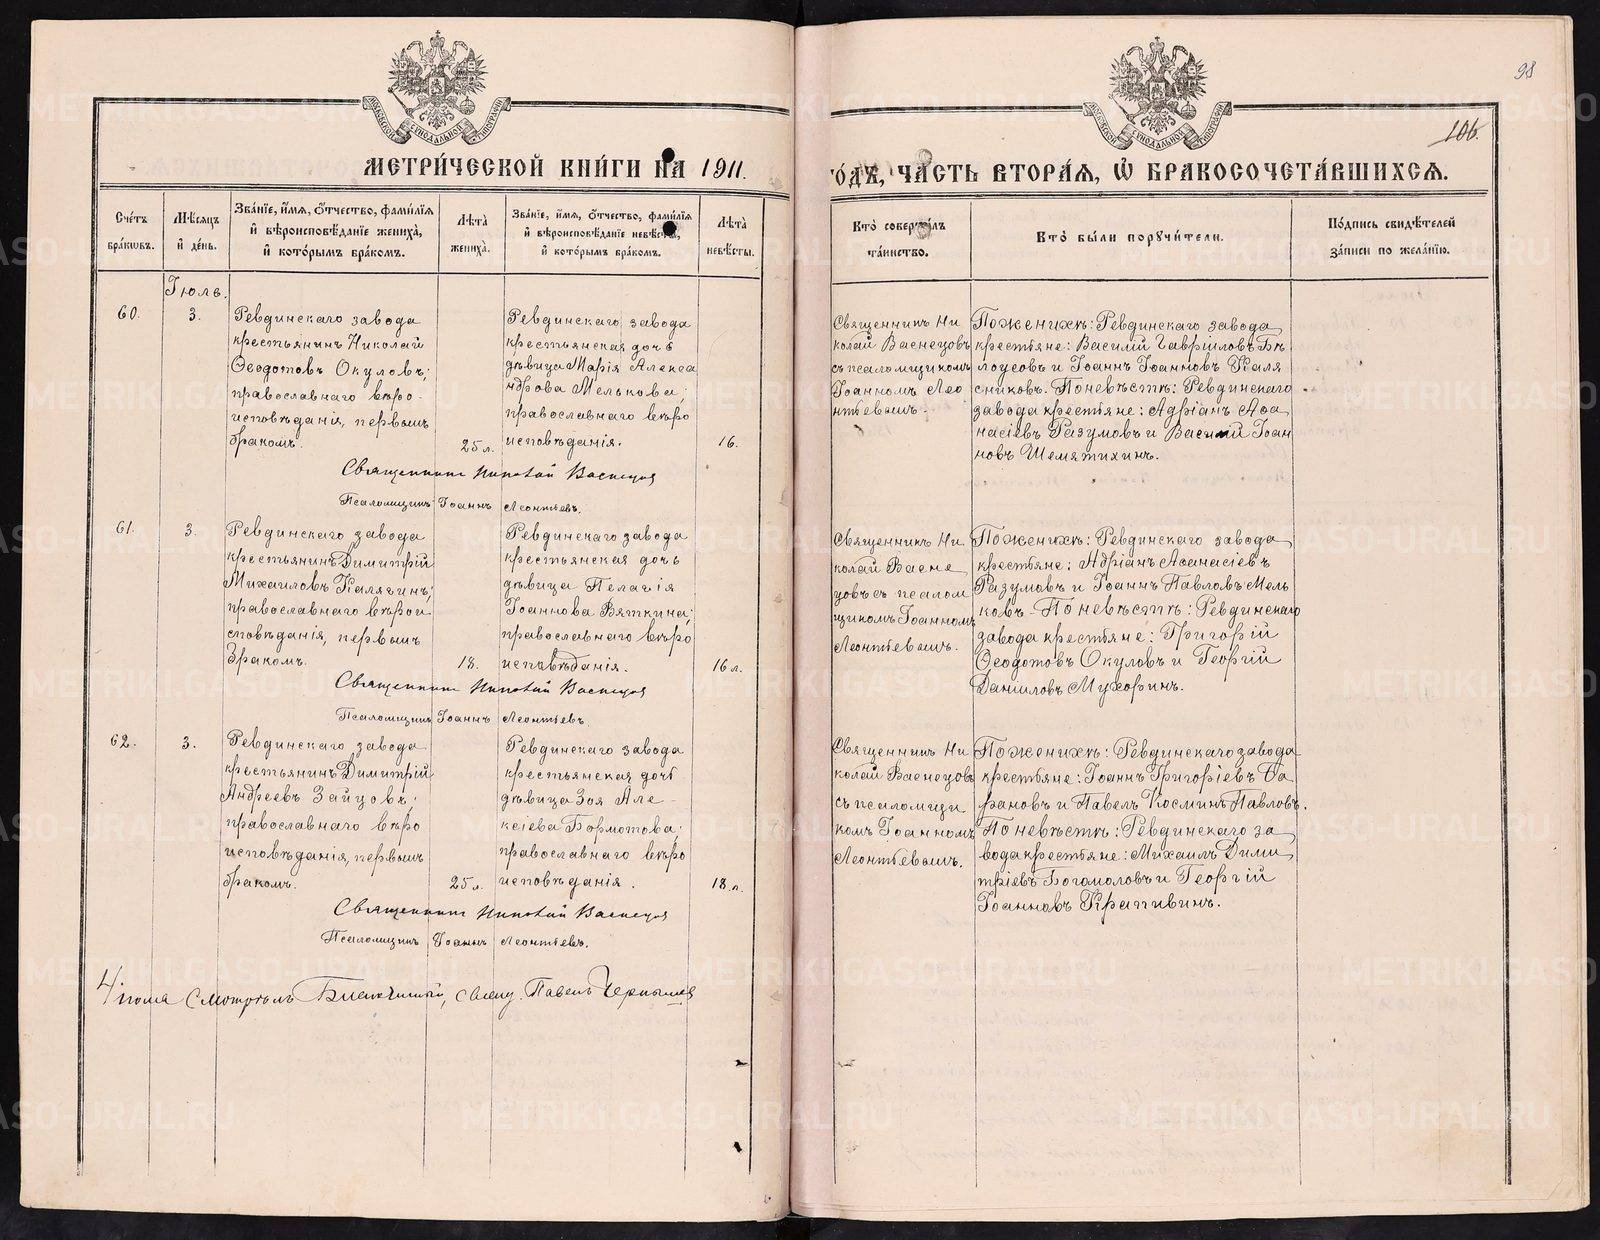 98
106.
МЕТРИ́ЧЕСКОЙ КНИ́ГИ НА 1911.
ГО́ДЪ, ЧА́СТЬ ВТОРА́Я, Ѡ БРАКОСОЧЕТА́ВШИХСЯ.
Сче́тъ бра́кѡвъ.
Мѣ́сяцъ и де́нь.
Зва́нїе, и́мя, о́тчество, фами́лїя и вѣроисповѣ́данїе жениха̀, и кото́рымъ бра́комъ.
Лѣта̀ жениха̀.
Зва́нїе, и́мя, о́тчество, фами́лїя и вѣроисповѣ́данїе невѣ́сты, и кото́рымъ бра́комъ.
Лѣта̀ невѣ́сты.
Кто̀ соверши́лъ та́инство.
Кто̀ бы́ли поручи́тели.
По́дпись свидѣ́телей за́писи по жела́нїю.
Іюль.
60.
3.
Ревдинскаго завода
крестьянинъ Николай
Ѳеодотовъ Окуловъ;
православнаго вѣро-
исповѣданія, первымъ
бракомъ.
25 л.
Ревдинскаго завода
крестьянская дочь
дѣвица Марія Алекса
ндрова Мелькова;
православнаго вѣро
исповѣданія.
16.
Священникъ Ни
колай Васнецовъ
съ псаломщикомъ
Іоанномъ Лео
нтьевымъ.
По женихѣ: Ревдинскаго завода
крестьяне: Василій Гавриловъ Бѣ
лоусовъ и Іоаннъ Іоанновъ Каля
сниковъ. По невѣстѣ: Ревдинскаго
завода крестьяне: Адріанъ Аѳа
насіевъ Разумовъ и Василій Іоан
новъ Шемятихинъ.
Священникъ Николай Васнецов
Псаломщикъ Іоаннъ Леонтьевъ.
61.
3.
Ревдинскаго завода
крестьянинъ Димитрій
Михаиловъ Калягинъ;
православнаго вѣрои
сповѣданія, первымъ
бракомъ.
18.
Ревдинскаго завода
крестьянская дочь
дѣвица Пелагія
Іоаннова Вяткина;
православнаго вѣро
исповѣданія.
16 л.
Священникъ Ни
колай Васне
цовъ съ псалом
щикомъ Іоанномъ
Леонтьевымъ.
По женихѣ: Ревдинскаго завода
крестьяне: Адріанъ Аѳанасіевъ
Разумовъ и Іоаннъ Павловъ Мель
ковъ. По невѣстѣ: Ревдинскаго
завода крестьяне: Григорій
Ѳеодотовъ Окуловъ и Георгій
Даниловъ Мухоринъ.
Священникъ Николай Васнецов
Псаломщикъ Іоаннъ Леонтьевъ.
62.
3.
Ревдинскаго завода
крестьянинъ Димитрій
Андреевъ Зайцовъ;
православнаго вѣро
исповѣданія, первымъ
бракомъ.
25 л.
Ревдинскаго завода
крестьянская дочь
дѣвица Зоя Але-
ксіева Бормотова;
православнаго вѣро
исповѣданія.
18 л.
Священникъ Ни
колай Васнецовъ
съ псаломщи
комъ Іоанномъ
Леонтьевымъ.
По женихѣ: Ревдинскаго завода
крестьяне: Іоаннъ Григоріевъ Ба
рановъ и Павелъ Косминъ Павловъ.
По невѣстѣ: Ревдинскаго за
вода крестьяне: Михаилъ Дими
тріевъ Богомоловъ и Георгій
Іоанновъ Крапивинъ.
Священникъ Николай Васнецов
Псаломщикъ Іоаннъ Леонтьевъ.
Читалъ смотрѣлъ Благочинный, Священ. Павелъ Чернышев
METRIKI.GASO-URAL.RU